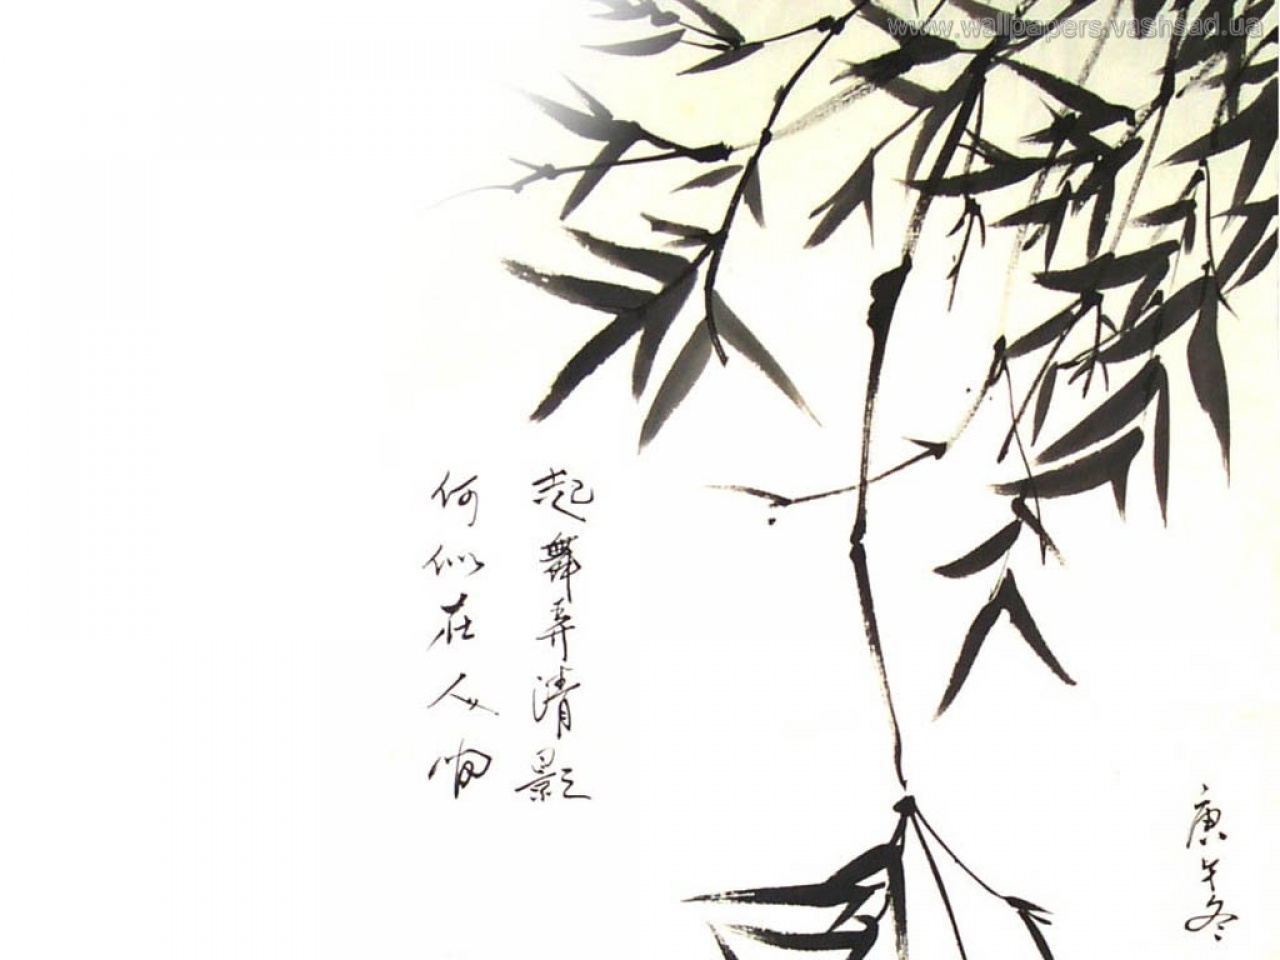 www.wallpapers.vashsad.ua
起舞弄清影
何似在人间
庚午冬